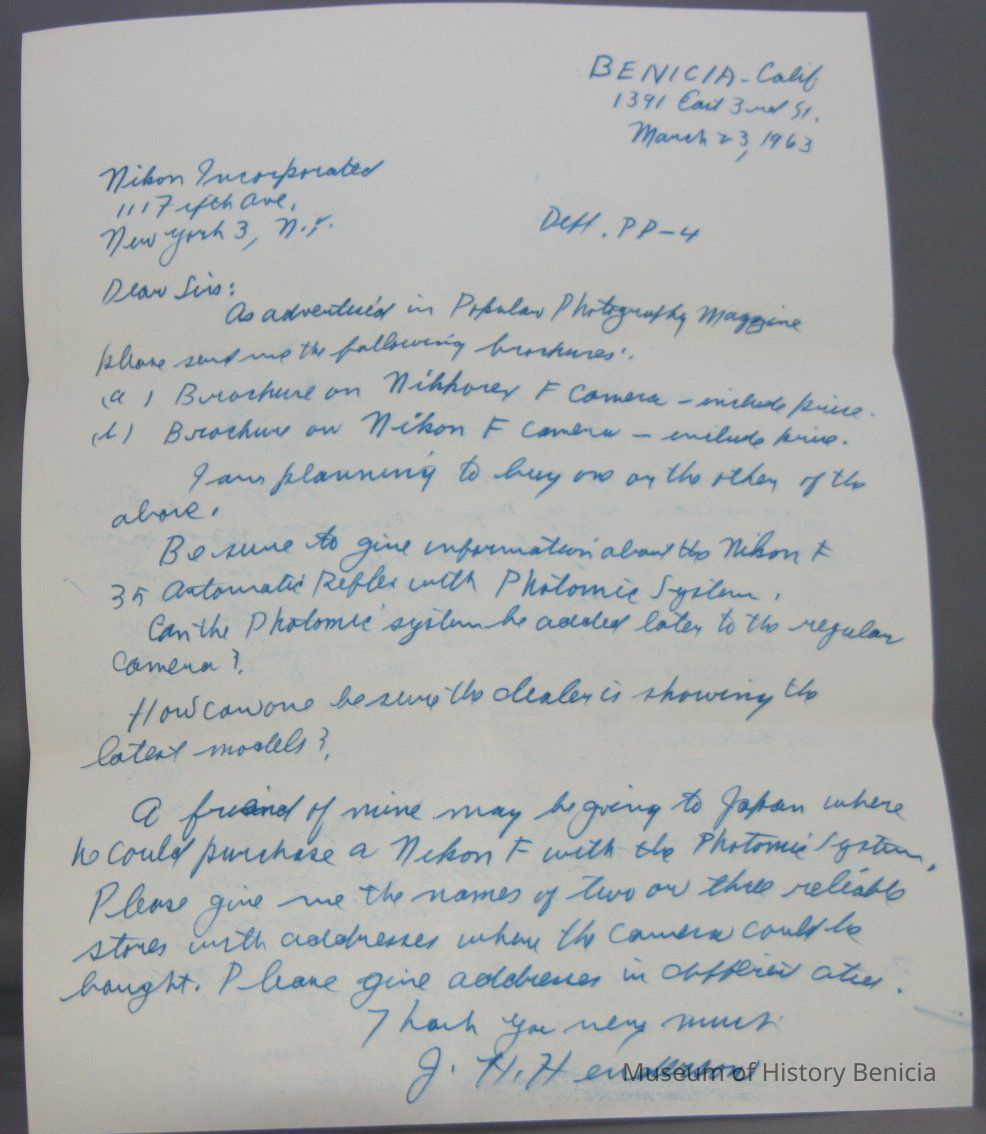 BENICIA - Calif
1391 East 3rd St.
March 23, 1963
Nikon Incorporated
111 Fifth Ave.
New York 3, N.Y.
Dept. PP-4
Dear Sirs:
As advertised in Popular Photography Magazine
please send me the following brochures:
(a) Brochure on Nikkorex F Camera - include price.
(b) Brochure on Nikon F camera - include price.
I am planning to buy one or the other of the
above.
Be sure to give information about the Nikon F
35 Automatic Reflex with Photomic System.
Can the Photomic system be added later to the regular
camera?
How can one be sure the dealer is showing the
latest models?
A friend of mine may be going to Japan where
he could purchase a Nikon F with the Photomic System.
Please give me the names of two or three reliable
stores with addresses where the camera could be
bought. Please give addresses in different cities.
Thank you very much
J. H.
Museum of History Benicia